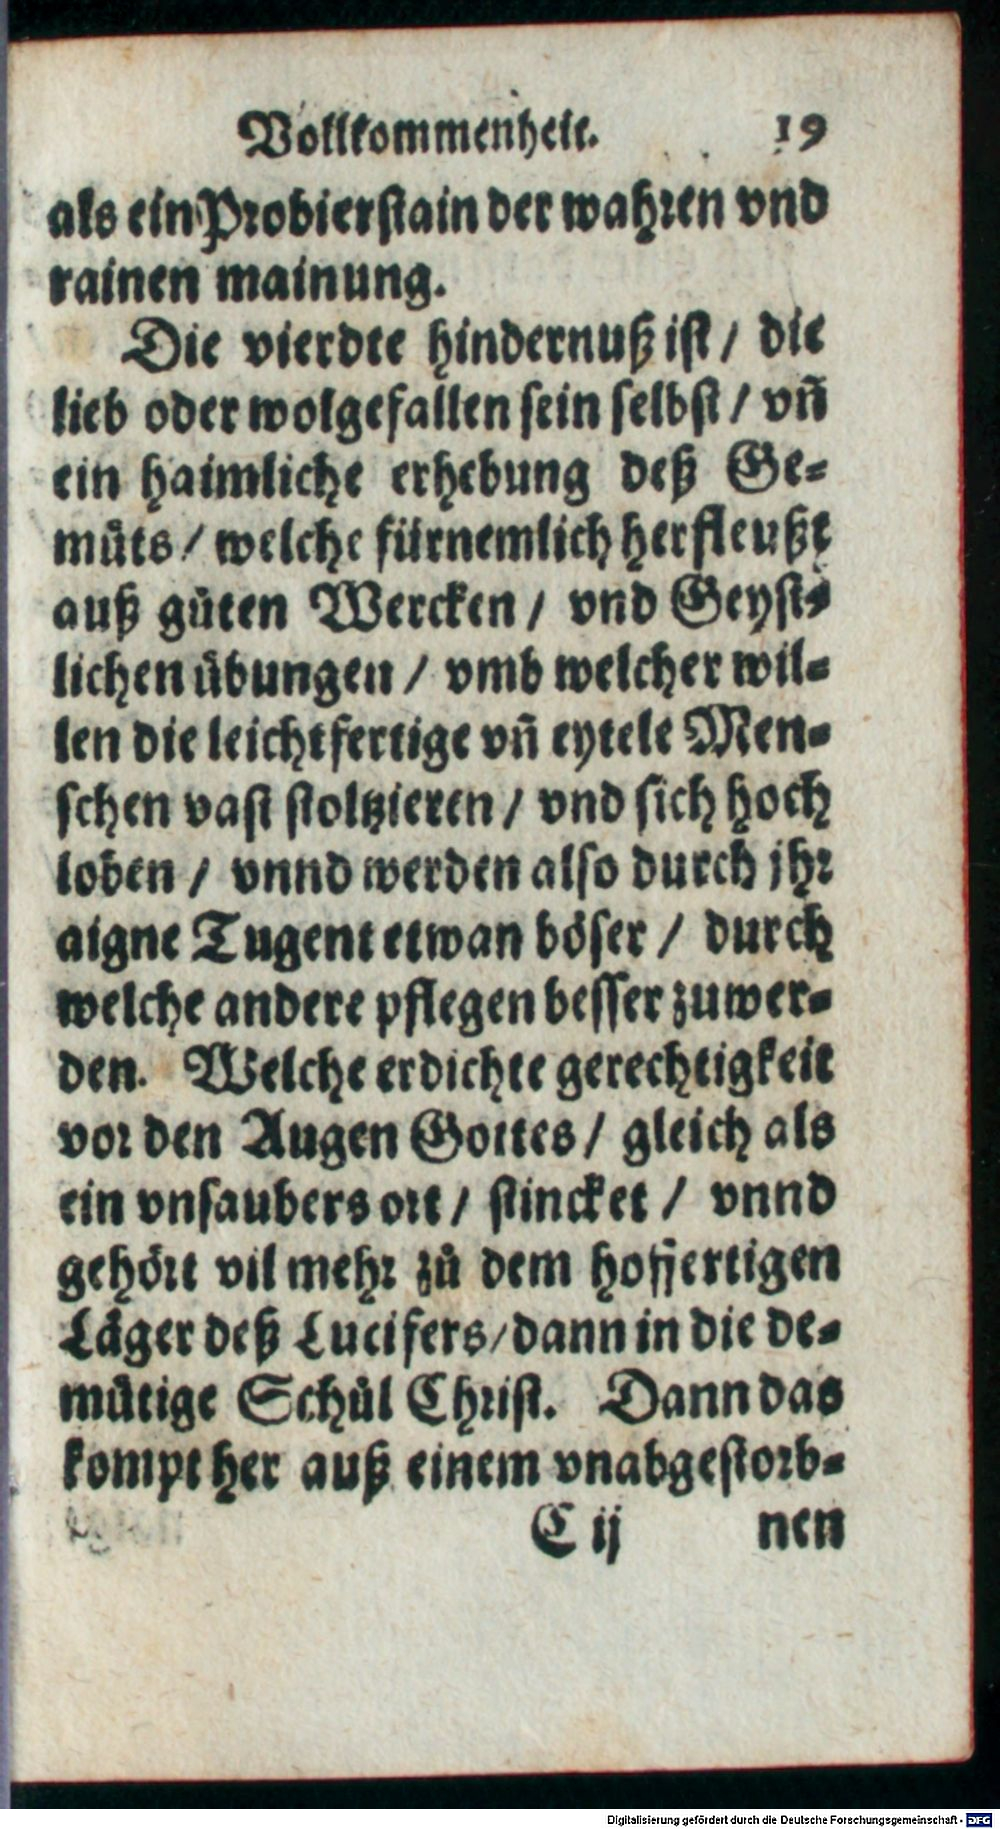 Vollkommenheit. 19
als ein Probierstain der wahren vnd
rainen mainung.
Die vierdte hindernuß ist / die
lieb oder wolgefallen sein selbst / vñ
ein haimliche erhebung deß Ge-
muͤts / welche fürnemlich herfleußt
auß guͤten Wercken / vnd Geyst-
lichen uͤbungen / vmb welcher wil-
len die leichtfertige vñ eytele Men-
schen vast stoltzieren / vnd sich hoch
loben / vnnd werden also durch jhr
aigne Tugent etwan boͤser / durch
welche andere pflegen besser zuwer-
den. Welche erdichte gerechtigkeit
vor den Augen Gottes / gleich als
ein vnsaubers ort / stincket / vnnd
gehoͤrt vil mehr zů dem hoffertigen
Laͤger deß Lucifers / dann in die de-
muͤtige Schůl Christ. Dann das
kompt her auß einem vnabgestorb-
C ij nen
Digitalisierung gefördert durch die Deutsche Forschungsgemeinschaft - DFG